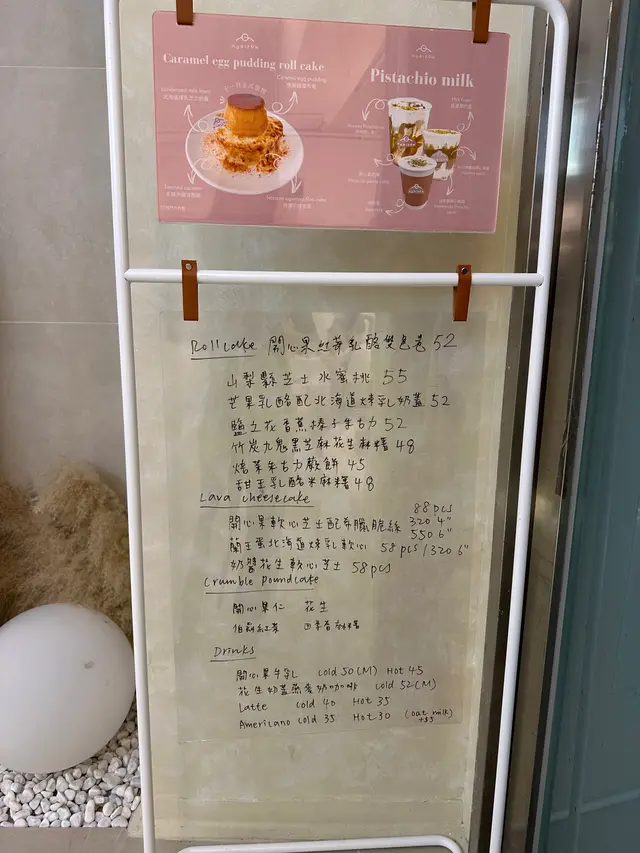 Caramel egg pudding roll cake
Caramel egg pudding
Pistachio milk
Roll cake 開心果紅莓乳酪雙色卷 52
山梨縣芝士水蜜桃 55
芒果乳酪配北海道烤乳奶蓋 52
鹽之花香蕉榛子朱古力 52
竹炭九鬼黑芝麻花生麻糬 48
焙茶朱古力蕨餅 45
甜王乳酪米麻糬 48
Lava cheesecake
88 pcs
開心果軟心芝士配希臘脆絲 320 4"
550 6"
蘭王蛋北海道烤乳軟心 58 pcs / 320 6"
奶醬花生軟心芝士 58 pcs
Crumble Poundcake
開心果仁 花生
伯爵紅茶
Drinks
開心果牛乳 cold 50 (M) Hot 45
花生奶蓋燕麥奶咖啡 cold 52 (M)
Latte cold 40 Hot 35
Americano cold 35 Hot 30 (oat milk)
+$5